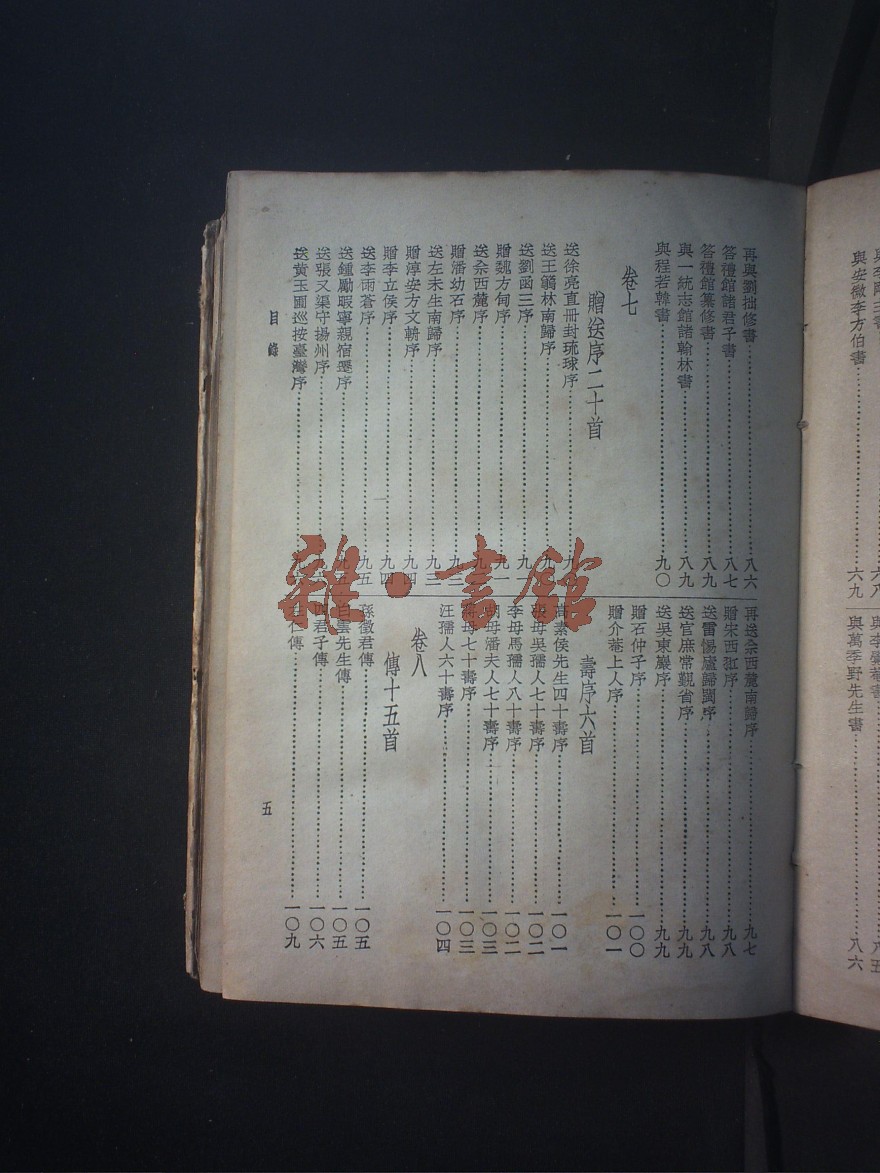 與李剛主書
與安徽李方伯書……六九
與萬季野先生書……八六
再與劉拙修書……八六
答禮館諸君子書……八七
答禮館纂修書……八九
與一統志館諸翰林書……八九
與程若韓書……九〇
卷七
贈送序二十首
送徐亮直冊封琉球序
送王篛林南歸序
送劉函三序
贈魏方甸序
送佘西麓序
贈潘幼石序
送左未生南歸序……九三
贈淳安方文輈序……九四
贈李立侯序……九四
送李雨蒼序……九五
送鍾勵暇寧親宿遷序
送張又渠守揚州序
送黃玉圃巡按臺灣序
再送佘西麓南歸序……九七
贈宋西㳡序……九八
送雷惕廬歸閩序……九八
送官庶常覲省序……九九
送吳東巖序……九九
贈石仲子序……一〇〇
贈介菴上人序……一〇一
壽序六首
高素侯先生四十壽序……一〇一
母吳孺人七十壽序……一〇二
李母馬孺人八十壽序……一〇二
胡母潘夫人七十壽序……一〇三
母七十壽序……一〇三
汪孺人六十壽序……一〇四
卷八
傳十五首
孫徵君傳……一〇五
白雲先生傳……一〇五
四君子傳……一〇六
仁傳……一〇九
目錄
五
雜·書館